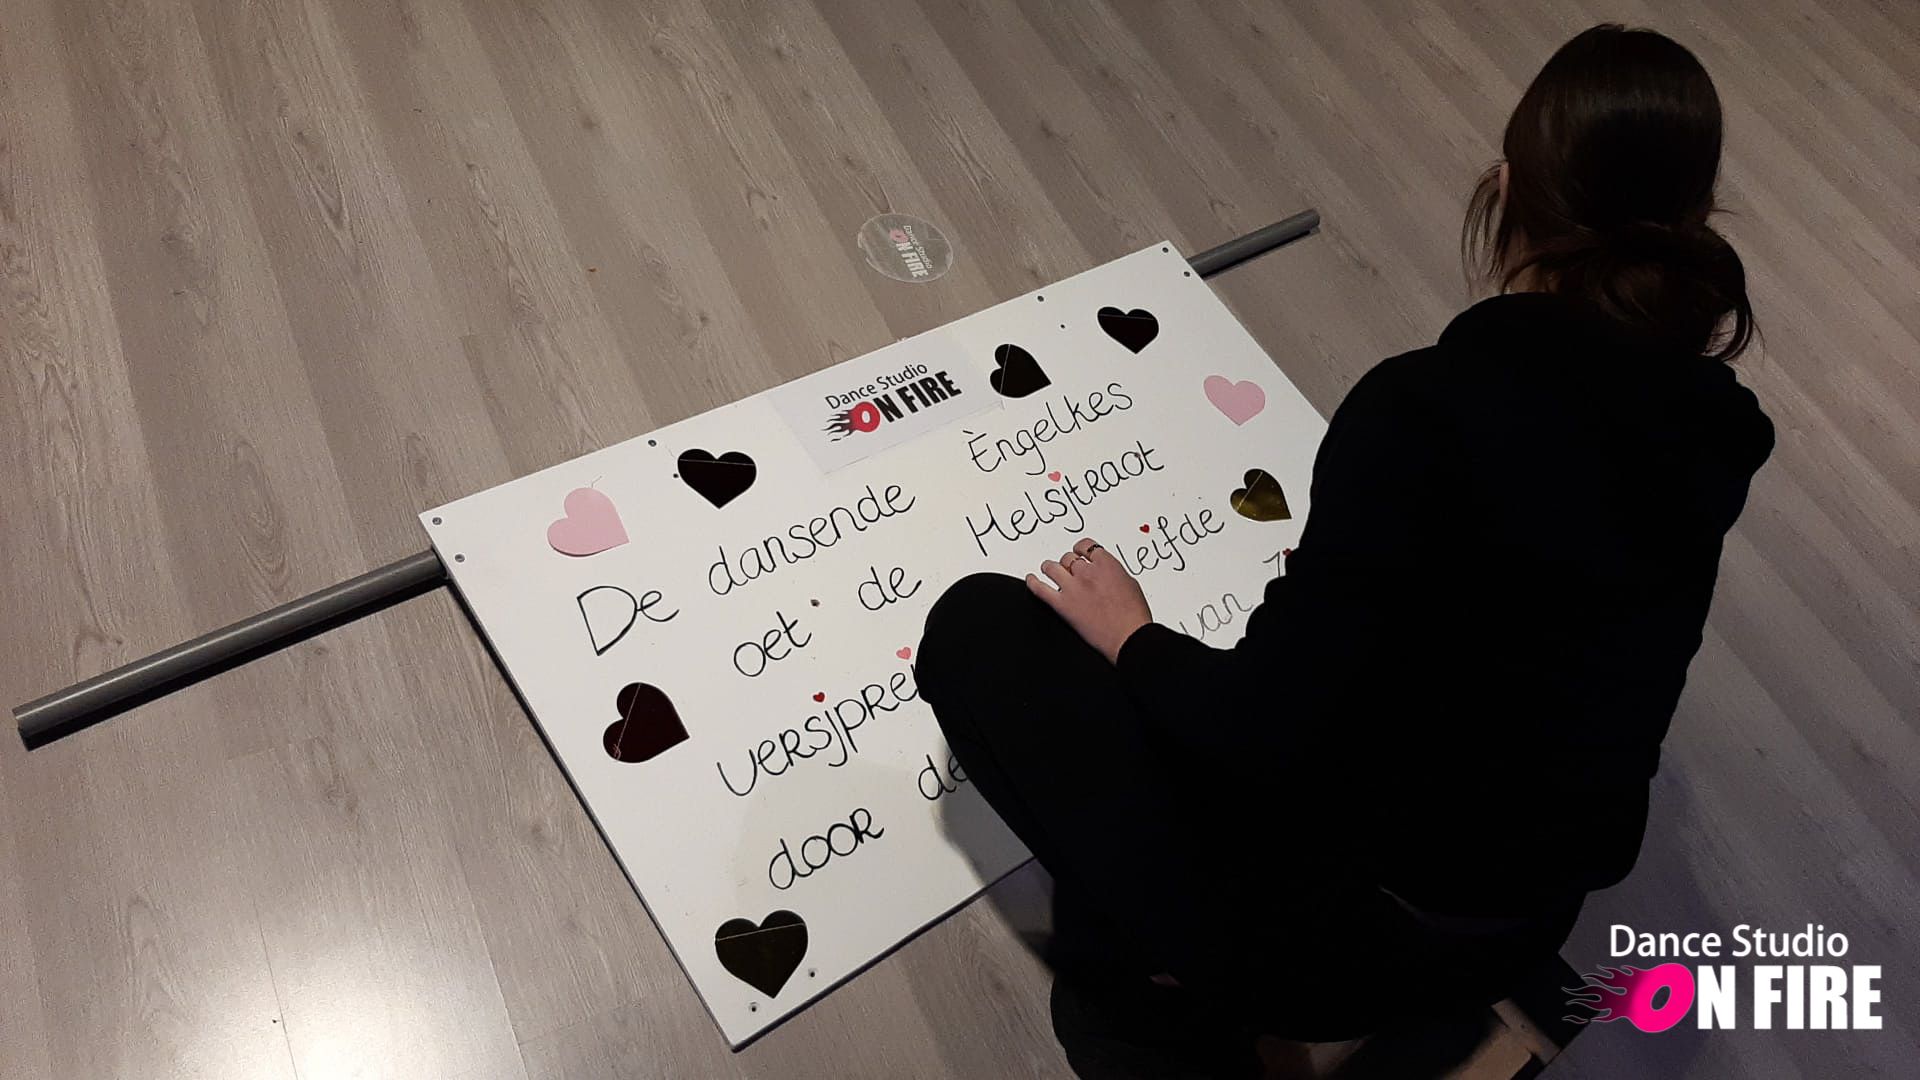 Dance Studio
ON FIRE
Dance Studio
ON FIRE
De dansende Èngelkes
oet de Helsjtraot
leifde
door van
Dance Studio
ON FIRE